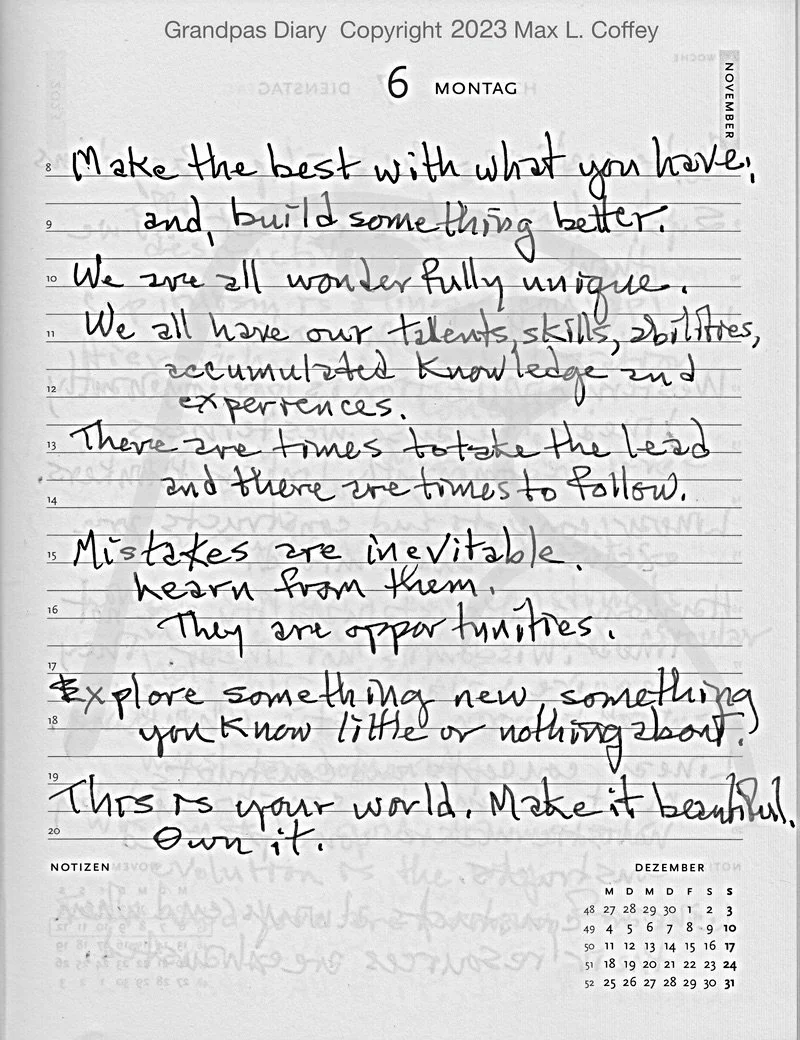 Grandpas Diary Copyright 2023 Max L. Coffey
6 MONTAG
NOVEMBER
8 Make the best with what you have;
9 and, build something better.
10 We are all wonderfully unique.
11 We all have our talents, skills, abilities,
accumulated knowledge and
12 experiences.
13 There are times to take the lead
and there are times to follow.
14
15 Mistakes are inevitable.
Learn from them.
16 They are opportunities.
17
Explore something new, something
18 you know little or nothing about.
19
This is your world. Make it beautiful.
20 Own it.
NOTIZEN
DEZEMBER
M D M D F S S
48 27 28 29 30 1 2 3
49 4 5 6 7 8 9 10
50 11 12 13 14 15 16 17
51 18 19 20 21 22 23 24
52 25 26 27 28 29 30 31